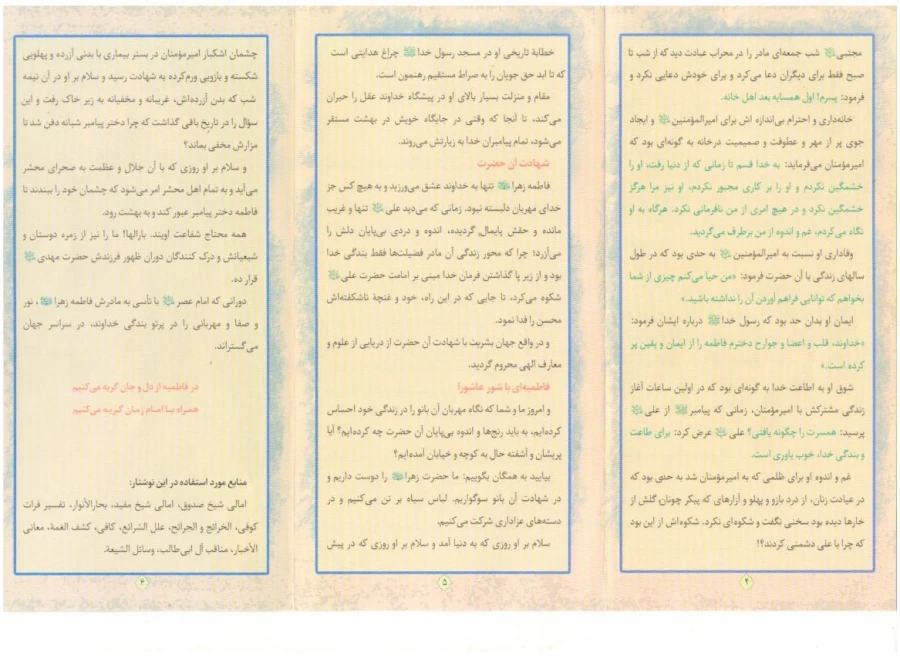 مجتبی﷣ شب جمعه‌ای مادر را در محراب عبادت دید که از شب تا
صبح فقط برای دیگران دعا می‌کرد و برای خودش دعایی نکرد و
فرمود: پسرم! اول همسایه بعد اهل خانه.
خانه‌داری و احترام بی‌اندازه اش برای امیرالمؤمنین و ایجاد
جوی پر از مهر و عطوفت و صمیمیت درخانه به گونه‌ای بود که
امیرمؤمنان می‌فرماید: به خدا قسم تا زمانی که از دنیا رفت، او را
خشمگین نکردم و او را بر کاری مجبور نکردم، او نیز مرا هرگز
خشمگین نکرد و در هیچ امری از من نافرمانی نکرد. هرگاه به او
نگاه می‌کردم، غم و اندوه از من برطرف می‌گردید.
وفاداری او نسبت به امیرالمؤمنین به حدی بود که در طول
سالهای زندگی با آن حضرت فرمود: «من حیا می‌کنم چیزی از شما
بخواهم که توانایی فراهم آوردن آن را نداشته باشید.»
ایمان او بدان حد بود که رسول خدا درباره ایشان فرمود:
«خداوند، قلب و اعضا و جوارح دخترم فاطمه را از ایمان و یقین پر
کرده است.»
شوق او به اطاعت خدا به گونه‌ای بود که در اولین ساعات آغاز
زندگی مشترکش با امیرمؤمنان، زمانی که پیامبر از علی
پرسید: همسرت را چگونه یافتی؟ علی عرض کرد: برای طاعت
و بندگی خدا، خوب یاوری است.
غم و اندوه او برای ظلمی که به امیرمؤمنان شد به حدی بود که
در عیادت زنان، از درد بازو و پهلو و آزارهای که پیکر چونان گلش از
خارها دیده بود سخنی نگفت و شکوه‌ای نکرد. شکوه‌اش از این بود
که چرا با علی دشمنی کردند؟!
۴
خطابهٔ تاریخی او در مسجد رسول خدا چراغ هدایتی است
که تا ابد حق جویان را به صراط مستقیم رهنمون است.
مقام و منزلت بسیار بالای او در پیشگاه خداوند عقل را حیران
می‌کند، تا آنجا که وقتی در جایگاه خویش در بهشت مستقر
می‌شود، تمام پیامبران خدا به زیارتش می‌روند.
شهادت آن حضرت
فاطمه زهرا تنها به خداوند عشق می‌ورزید و به هیچ کس جز
خدای مهربان دلبسته نبود. زمانی که می‌دید علی تنها و غریب
مانده و حقش پایمال گردیده، اندوه و دردی بی‌پایان دلش را
می‌آزرد؛ چرا که محور زندگی آن مادر فضیلت‌ها فقط بندگی خدا
بود و از زیر پا گذاشتن فرمان خدا مبنی بر امامت حضرت علی
شکوه می‌کرد، تا جایی که در این راه، خود و غنچهٔ ناشکفته‌اش
محسن را فدا نمود.
و در واقع جهان بشریت با شهادت آن حضرت از دریایی از علوم و
معارف الهی محروم گردید.
فاطمیه‌ای با شور عاشورا
و امروز ما و شما که نگاه مهربان آن بانو را در زندگی خود احساس
کرده‌ایم، به باید رنج‌ها و اندوه بی‌پایان آن حضرت چه کرده‌ایم؟ آیا
پریشان و آشفته حال به کوچه و خیابان آمده‌ایم؟
بیایید به همگان بگوییم: ما حضرت زهرا را دوست داریم و
در شهادت آن بانو سوگواریم. لباس سیاه بر تن می‌کنیم و در
دسته‌های عزاداری شرکت می‌کنیم.
سلام بر او روزی که به دنیا آمد و سلام بر او روزی که در پیش
۵
چشمان اشکبار امیرمؤمنان در بستر بیماری با بدنی آزرده و پهلویی
شکسته و بازویی ورم‌کرده به شهادت رسید و سلام بر او در آن نیمه
شب که بدن آزرده‌اش، غریبانه و مخفیانه به زیر خاک رفت و این
سؤال را در تاریخ باقی گذاشت که چرا دختر پیامبر شبانه دفن شد تا
مزارش مخفی بماند؟
و سلام بر او روزی که با آن جلال و عظمت به صحرای محشر
می‌آید و به تمام اهل محشر امر می‌شود که چشمان خود را ببندند تا
فاطمه دختر پیامبر عبور کند و به بهشت رود.
همه محتاج شفاعت اویند. بارالها! ما را نیز از زمره دوستان و
شیعیانش و درک کنندگان دوران ظهور فرزندش حضرت مهدی
قرار ده.
دورانی که امام عصر با تأسی به مادرش فاطمه زهرا، نور
و صفا و مهربانی را در پرتو بندگی خداوند، در سراسر جهان
می‌گستراند.
در فاطمیه از دل و جان گریه می‌کنیم
همراه بـا امـام زمـان گـریـه می‌کنیم
منابع مورد استفاده در این نوشتار:
امالی شیخ صدوق، امالی شیخ مفید، بحارالأنوار، تفسیر فرات
کوفی، الخرائج و الجرائح، علل الشرائع، کافی، کشف الغمة، معانی
الأخبار، مناقب آل ابی‌طالب، وسائل الشیعة.
۶